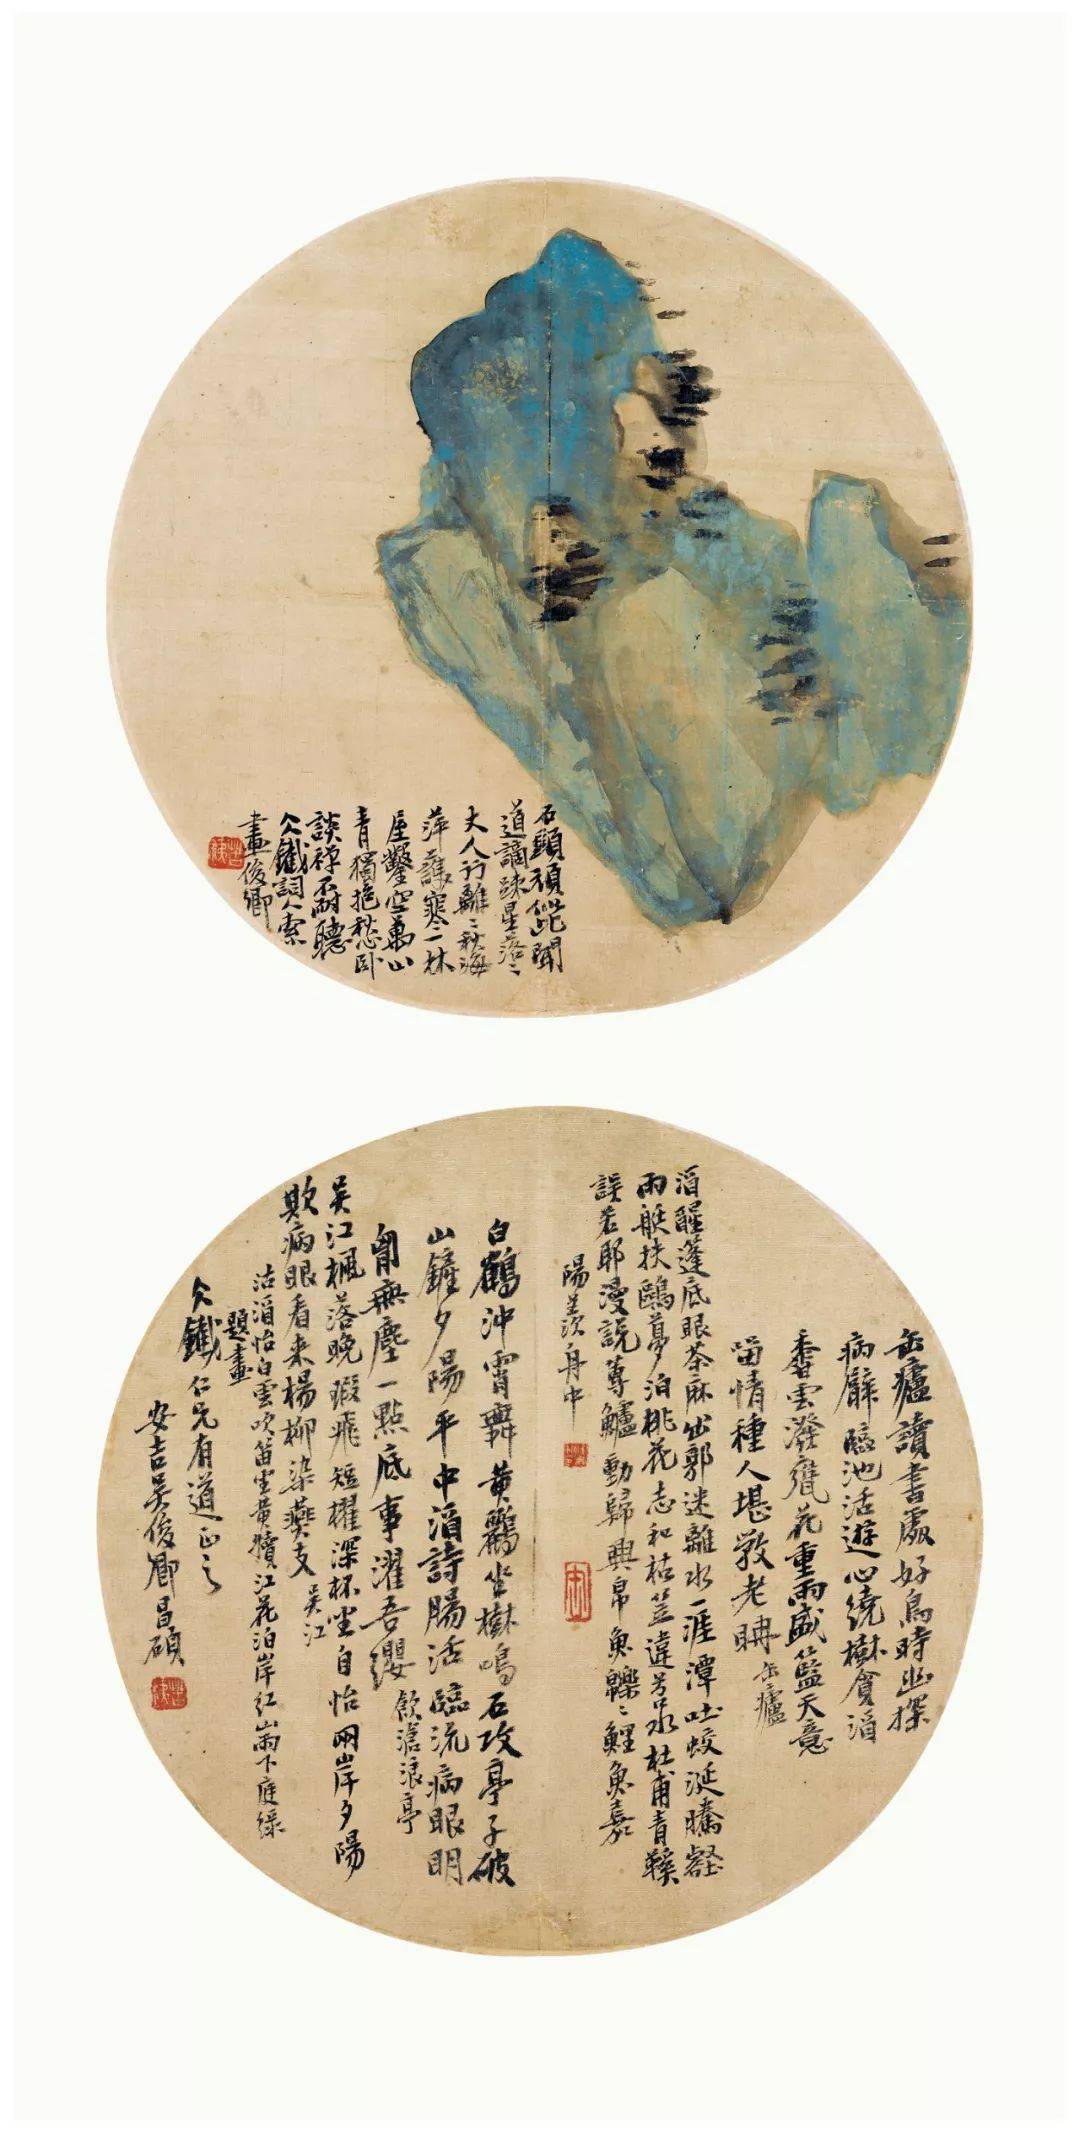 石頭頑能聞
道謫疎星落〻
丈人行離〻秋海
萍護寒一林
屋鑿空萬山
青獨抱愁卧
談禪不耐聽
欠鐵詞人索
畫俊卿
缶廬讀書處好鳥時幽探
病癖臨池活遊心繞樹貪酒
香雲潑甕花重雨盛籃天意
留情種人堪教老聃 缶廬
酒醒蓬底眼茶麻出郭迷離水一涯潭吐蛟涎騰壑
雨艇扶鷗夢泊桃花志和枯笠違苕水杜甫青鞵
誤若耶漫說蓴鱸動歸興帛魚鱳〻鯉魚嘉
陽羨舟中
白鶴沖霄舞黄鸝坐樹鳴石攻亭子破
山鏟夕陽平中酒詩腸活臨流病眼明
胷無塵一點底事濯吾纓 飲滄浪亭
吳江楓落晚瑕飛短櫂深杯坐自怡兩岸夕陽
欺病眼看来楊柳染燕支 吳江
沽酒怡白雲吹笛坐黄犢江花泊岸紅山雨下庭綠
題畫
欠鐵仁兄有道正之
安吉吳俊卿昌碩